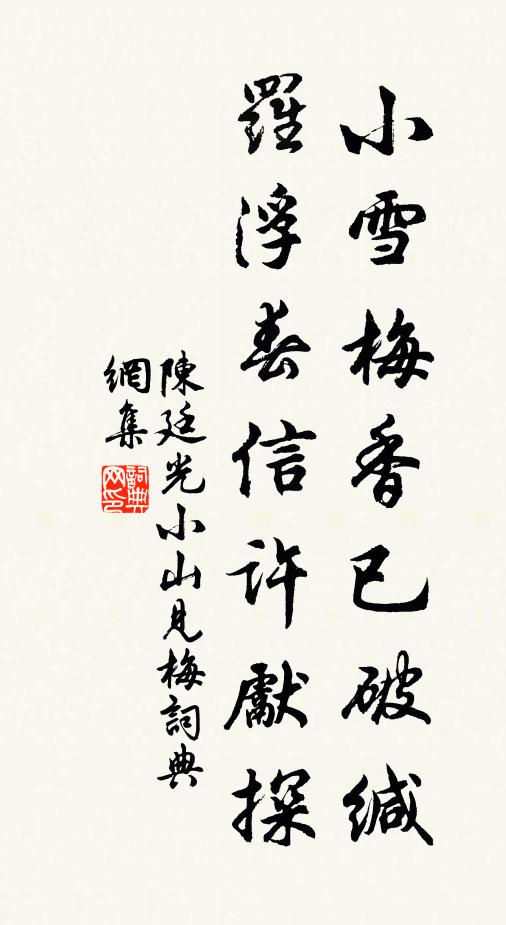 小雪梅香已破緘
羅浮春信許獻探
陳廷光小山見梅詞典
網集
詞典網印